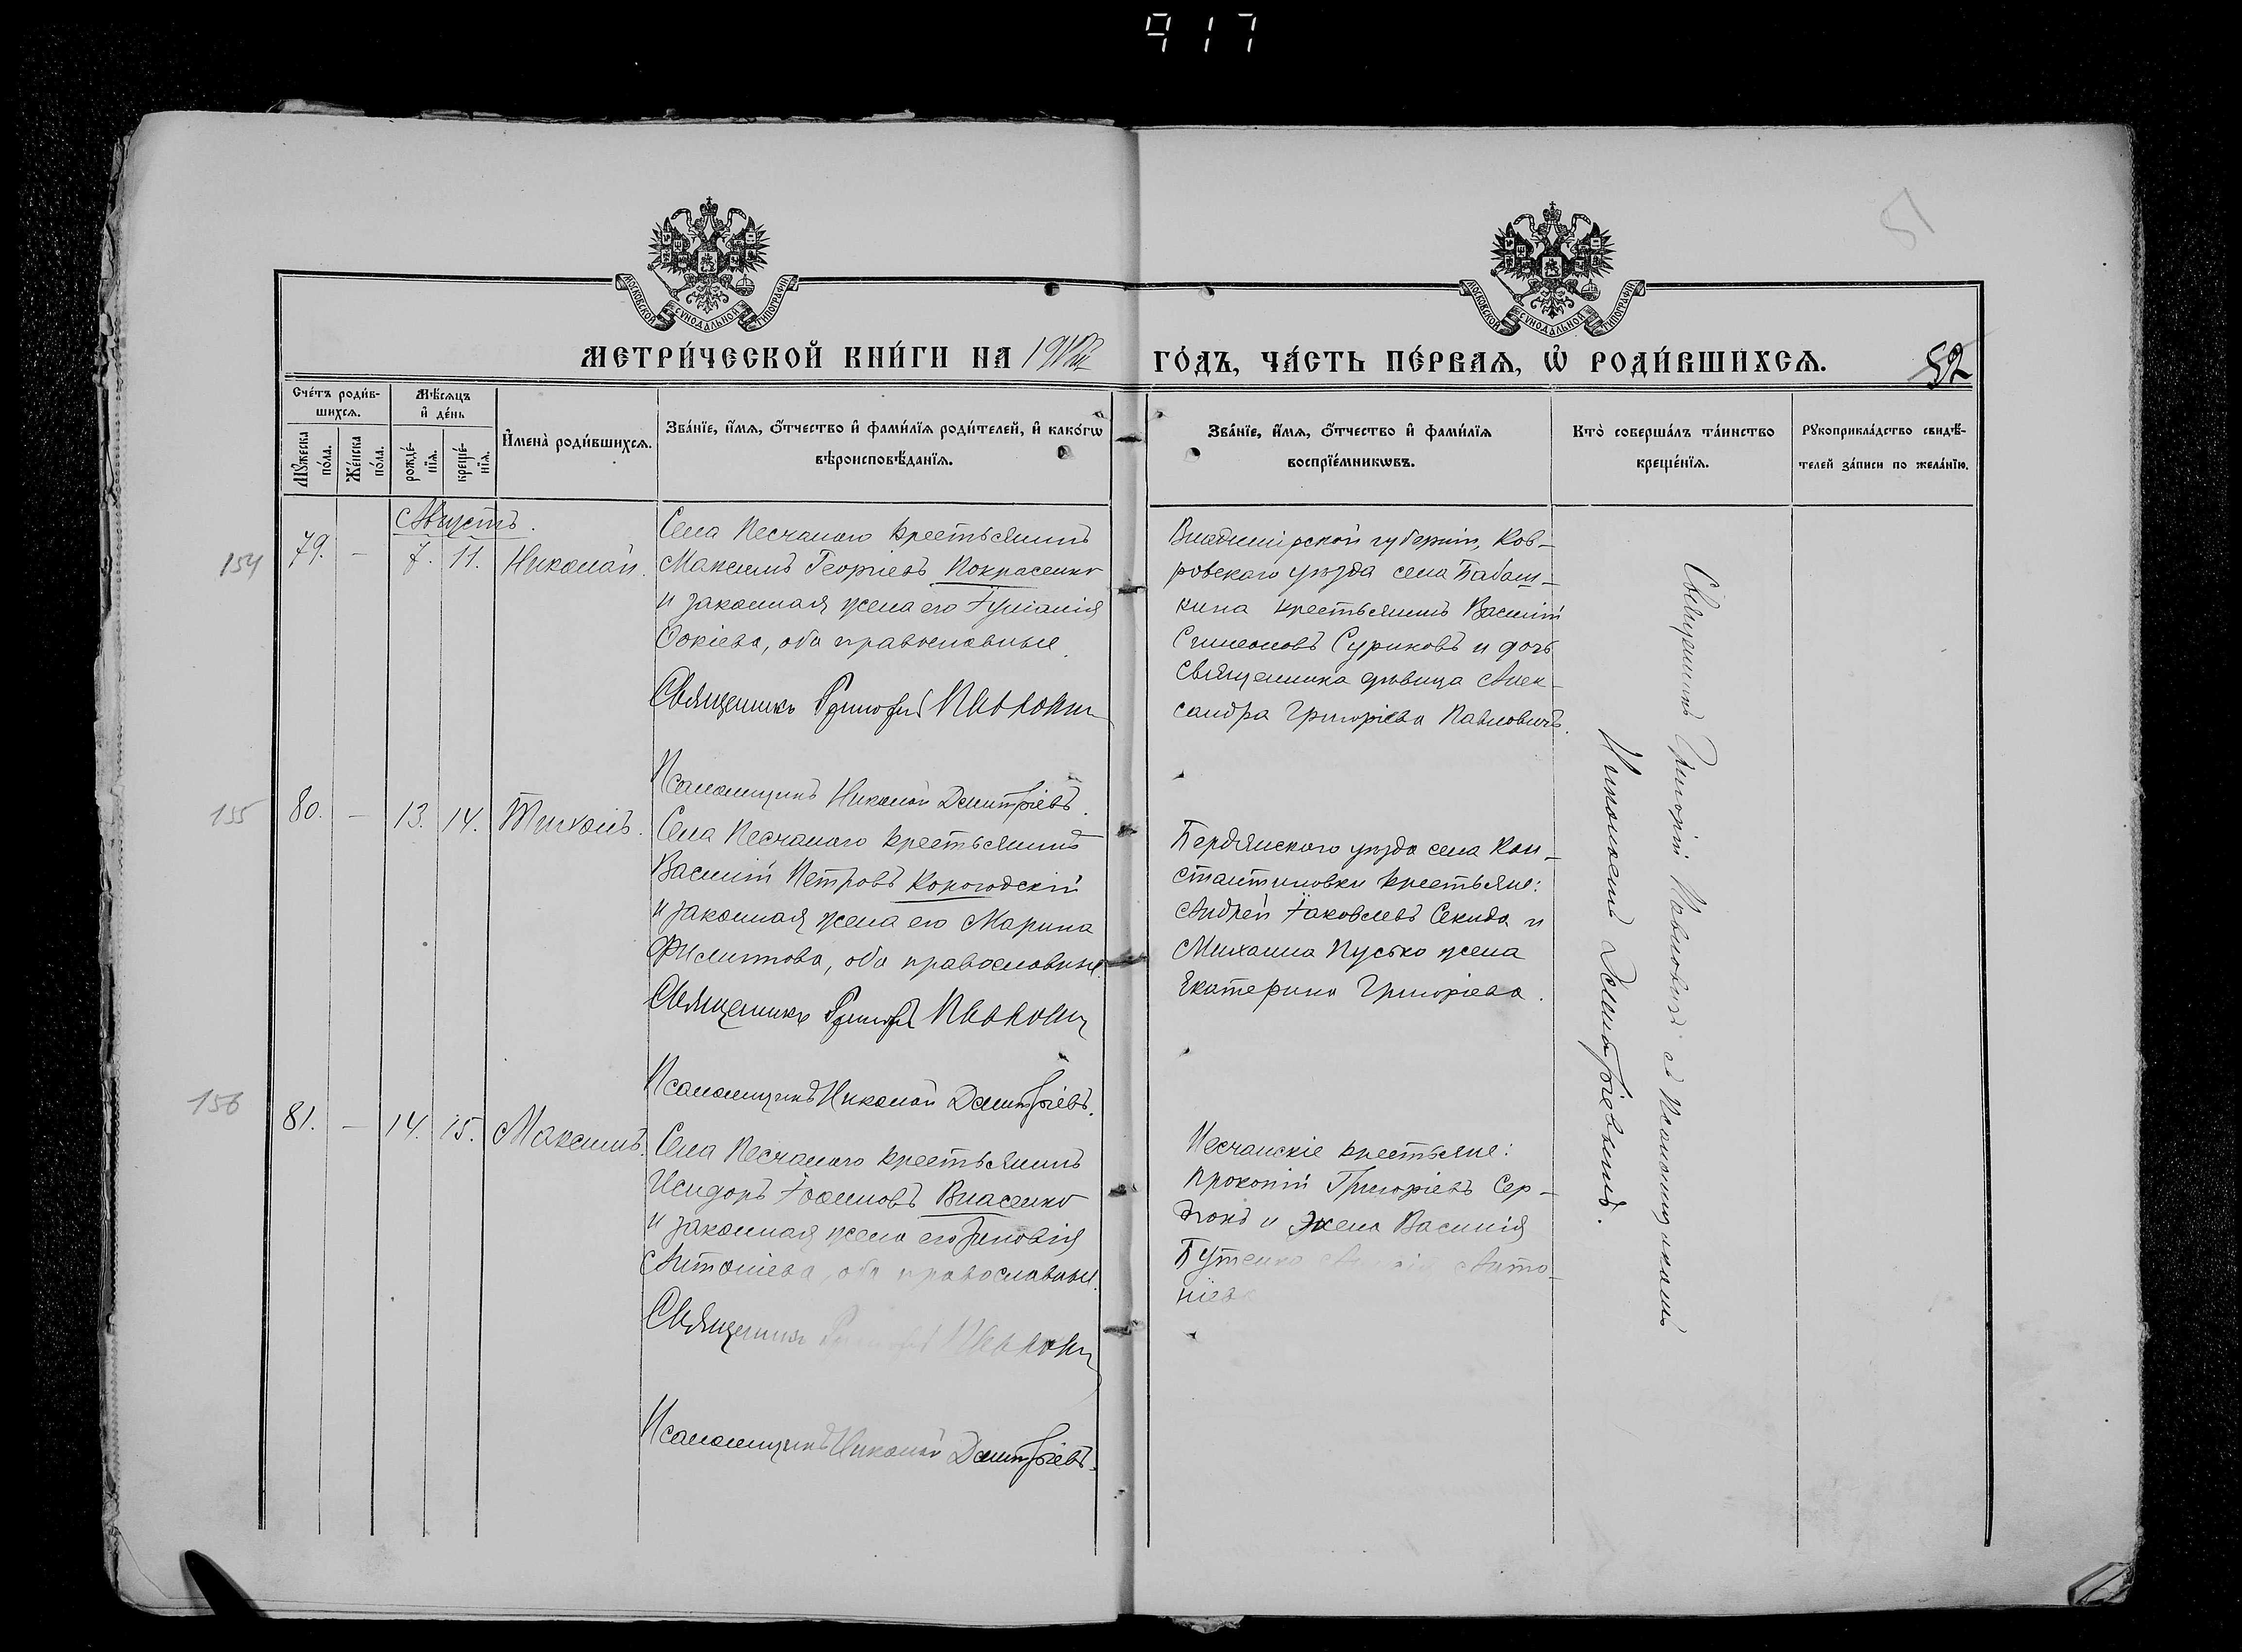 917
51
МОСКОВСКОЙ СѴНОДАЛЬНОЙ ТИПОГРАФІИ
МОСКОВСКОЙ СѴНОДАЛЬНОЙ ТИПОГРАФІИ
МЕТРИ́ЧЕСКОЙ КНИ́ГИ НА 19
ГО́ДЪ, ЧА́СТЬ ПЕ́РВАѦ, Ѡ҆ РОДИ́ВШИХСѦ.
52
Сче́тъ роди́в-
шихсѧ.
Мѣ́сѧцъ
и҆ де́нь
Мꙋ́жеска
по́ла.
Же́нска
по́ла.
рожде́-
нїѧ.
креще́-
нїѧ.
И҆мена̀ роди́вшихсѧ.
Зва́нїе, и҆́мѧ, ѻ҆́тчество и҆ фами́лїѧ роди́телей, и҆ како́гѡ
вѣроисповѣ́данїѧ.
Зва́нїе, и҆́мѧ, ѻ҆́тчество и҆ фами́лїѧ
воспрїе́мникѡвъ.
Кто̀ соверша́лъ та́инство
креще́нїѧ.
Рꙋкоприкла́дство свидѣ́-
телей за́писи по жела́нїю.
Августъ.
154 79. — 7. 11. Николай.
Села Песчаного крестьянинъ
Максимъ Георгіевъ Покрасенко
и законная жена его Іуліанія
Фокіева, оба православные.
Священникъ Григорій Павловичъ
Псаломщикъ Николай Димитріевъ.
Владимірской губерніи, Ков-
ровскаго уѣзда села Бабаш-
кина крестьянинъ Василій
Симеоновъ Суриковъ и дочь
священника дѣвица Алек-
сандра Григоріева Павловичъ.
155 80. — 13. 14. Тихонъ.
Села Песчаного крестьянинъ
Василій Петровъ Корогодскій
и законная жена его Марина
Филиппова, оба православные.
Священникъ Григорій Павловичъ
Псаломщикъ Николай Димитріевъ.
Бердянского уѣзда села Кон-
стантиновки крестьяне:
Андрей Іаковлевъ Секида и
Михаила Пусько жена
Екатерина Григоріева.
156 81. — 14. 15. Максимъ.
Села Песчаного крестьянинъ
Исидоръ Іоанновъ Власенко
и законная жена его Зиновія
Антоніева, оба православные.
Священникъ Григорій Павловичъ
Псаломщикъ Николай Димитріевъ.
Песчанскіе крестьяне:
Прокопій Григоріевъ Сер-
дюкъ и жена Василія
Бутенко Анто-
ніева
Священникъ Григорій Павловичъ съ Псаломщикомъ
Николаемъ Димитріевымъ.